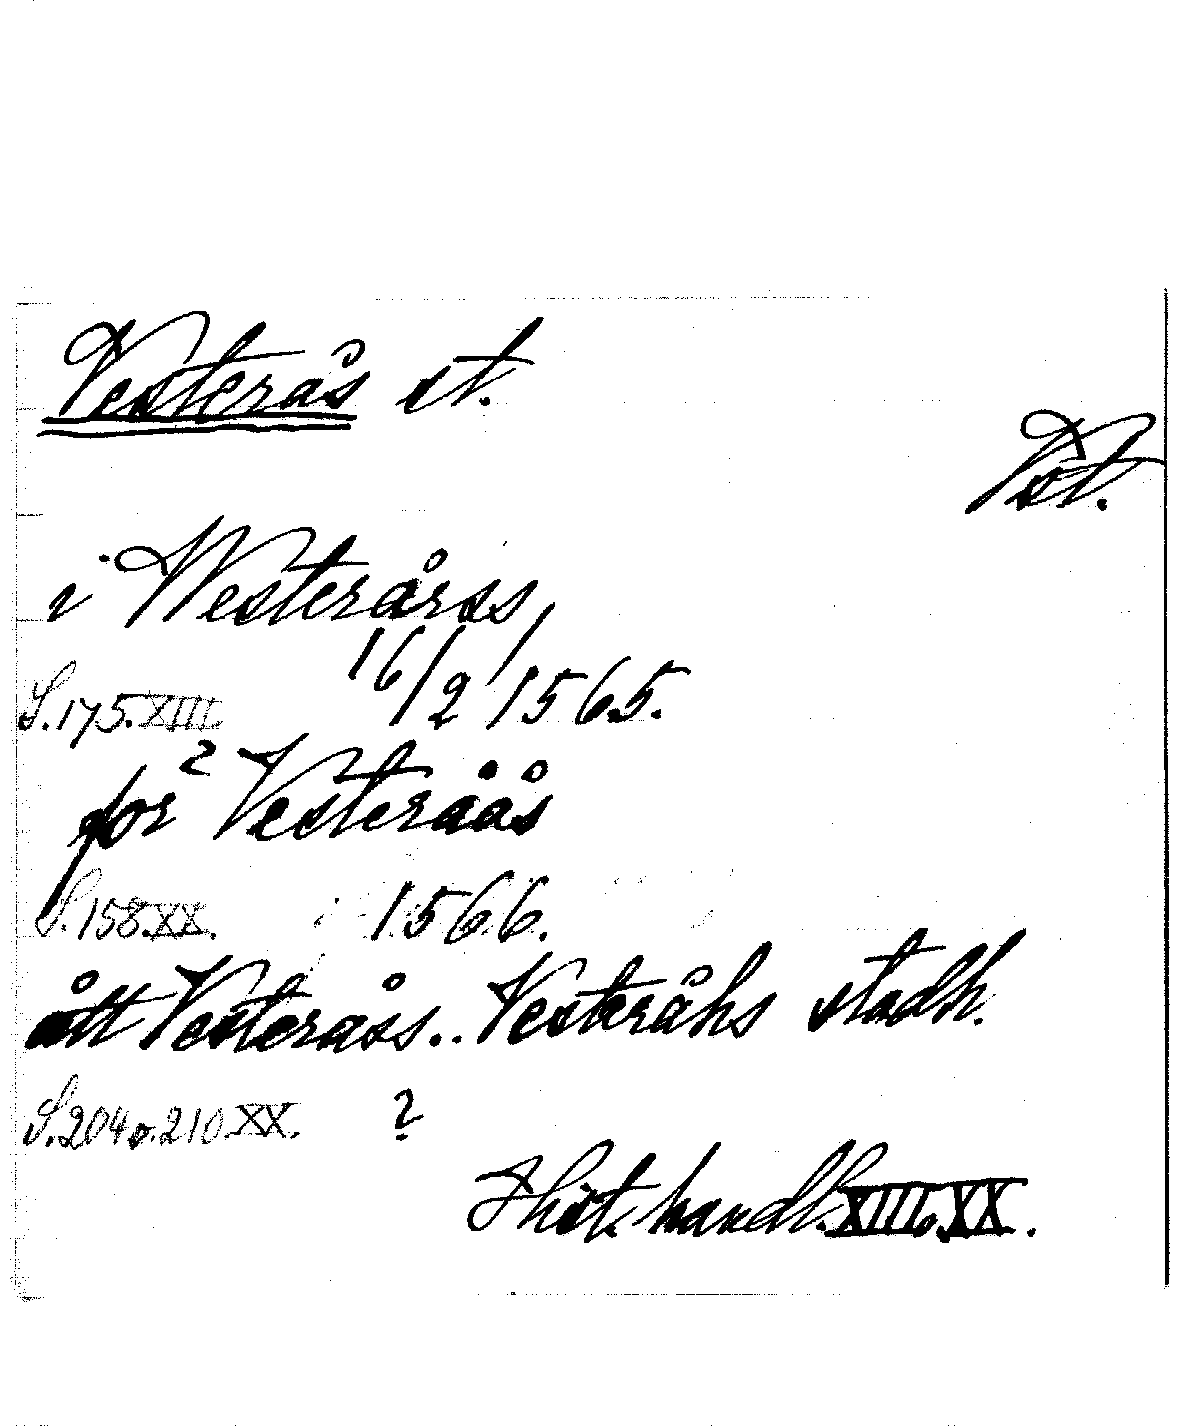 Vesterås st.
Vst.
i Westerårss,
S.175.XIII. 16/2 1565.
for Vesteråås
S.158.XX. 1566.
ått Vesteråss.. Vesteråhs stadh.
S.204 o. 210.XX. ?
Hist. handl. XIII o. XX.